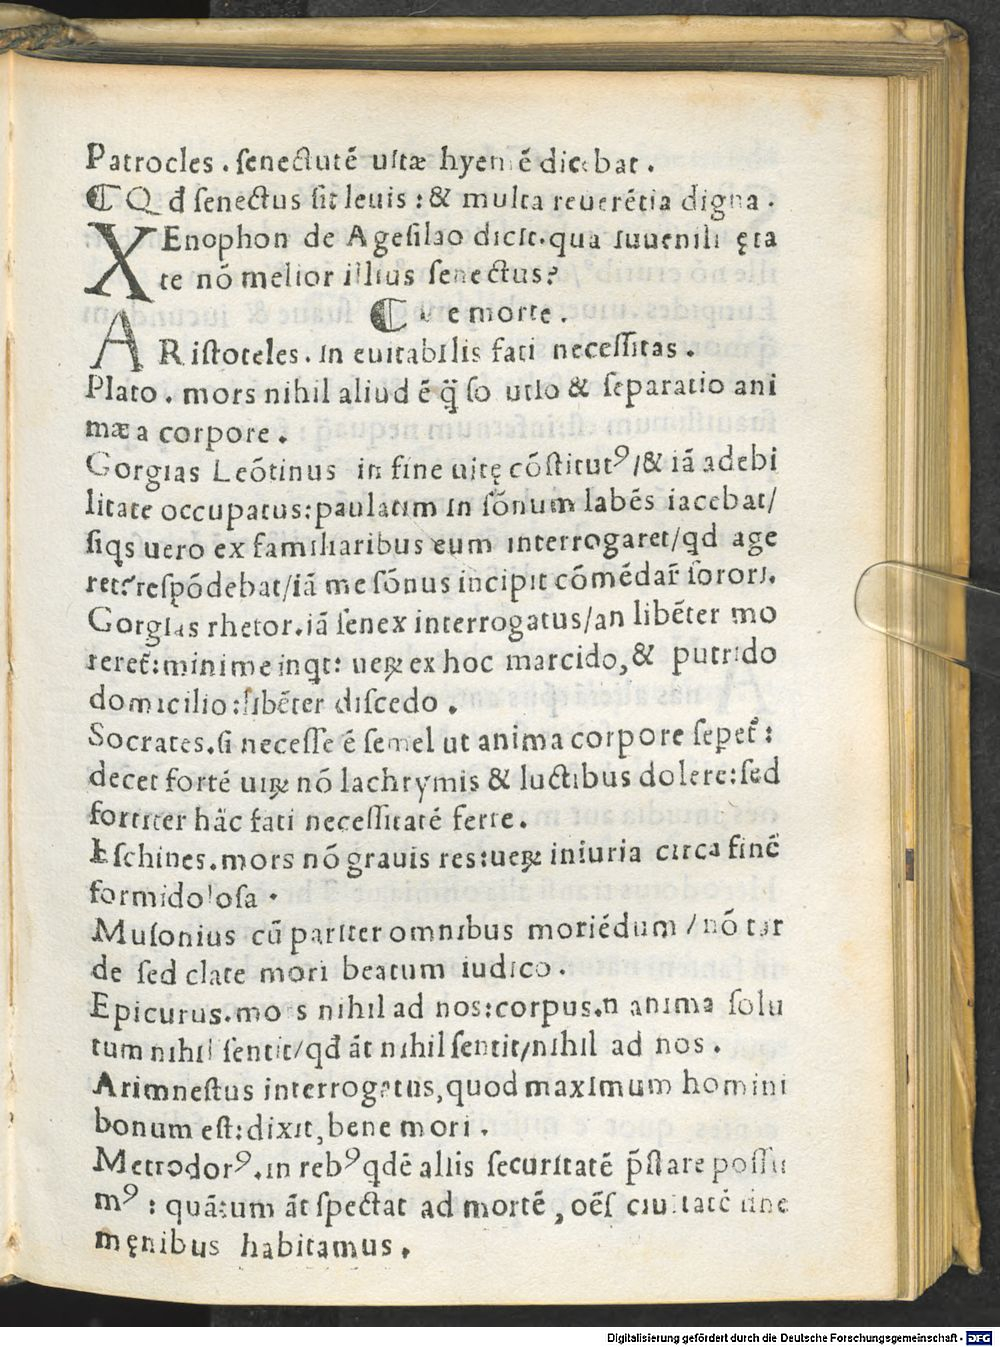 Patrocles . ſenectutē uitæ hyemē dicebat .
¶ Qđ ſenectus ſit leuis : & multa reuerētia digna .
XEnophon de Ageſilao dicit. qua iuuenili ęta
te nō melior illius ſenectus?
¶ De morte .
ARiſtoteles. in euitabilis fati neceſſitas .
Plato . mors nihil aliud ē q̄̈ ſo utio & ſeparatio ani
mæ a corpore .
Gorgias Leōtinus in fine uitę cōſtitutꝰ /& iā adebi
litate occupatus: paulatim in ſōnum labēs iacebat/
ſiqs uero ex familiaribus eum interrogaret/qd age
ret? reſpōdebat/iā me ſōnus incipit cōmēdar̄ ſorori.
Gorgias rhetor. iā ſenex interrogatus/an libēter mo
reret̄: minime inqt: ueꝝ ex hoc marcido, & putrido
domicilio: libēter diſcedo .
Socrates. ſi neceſſe ē ſemel ut anima corpore ſepet̄ :
decet fortē uiꝝ nō lachrymis & luctibus dolere: ſed
fortiter hāc fati neceſſitatē ferre .
Eſchines. mors nō grauis res: ueꝝ iniuria circa finē
formidoloſa .
Muſonius cū pariter omnibus moriēdum / nō tar
de ſed clate mori beatum iudico .
Epicurus. mors nihil ad nos: corpus. n anima ſolu
tum nihil ſentit/qđ āt nihil ſentit/nihil ad nos .
Arimneſtus interrogatus, quod maximum homini
bonum eſt: dixit, bene mori .
Metrodorꝰ . in rebꝰ qdē aliis ſecuritatē p̄ſtare poſſu
mꝰ : quātum āt ſpectat ad mortē , oēſ ciuitatē ſine
męnibus habitamus .
Digitalisierung gefördert durch die Deutsche Forschungsgemeinschaft - DFG